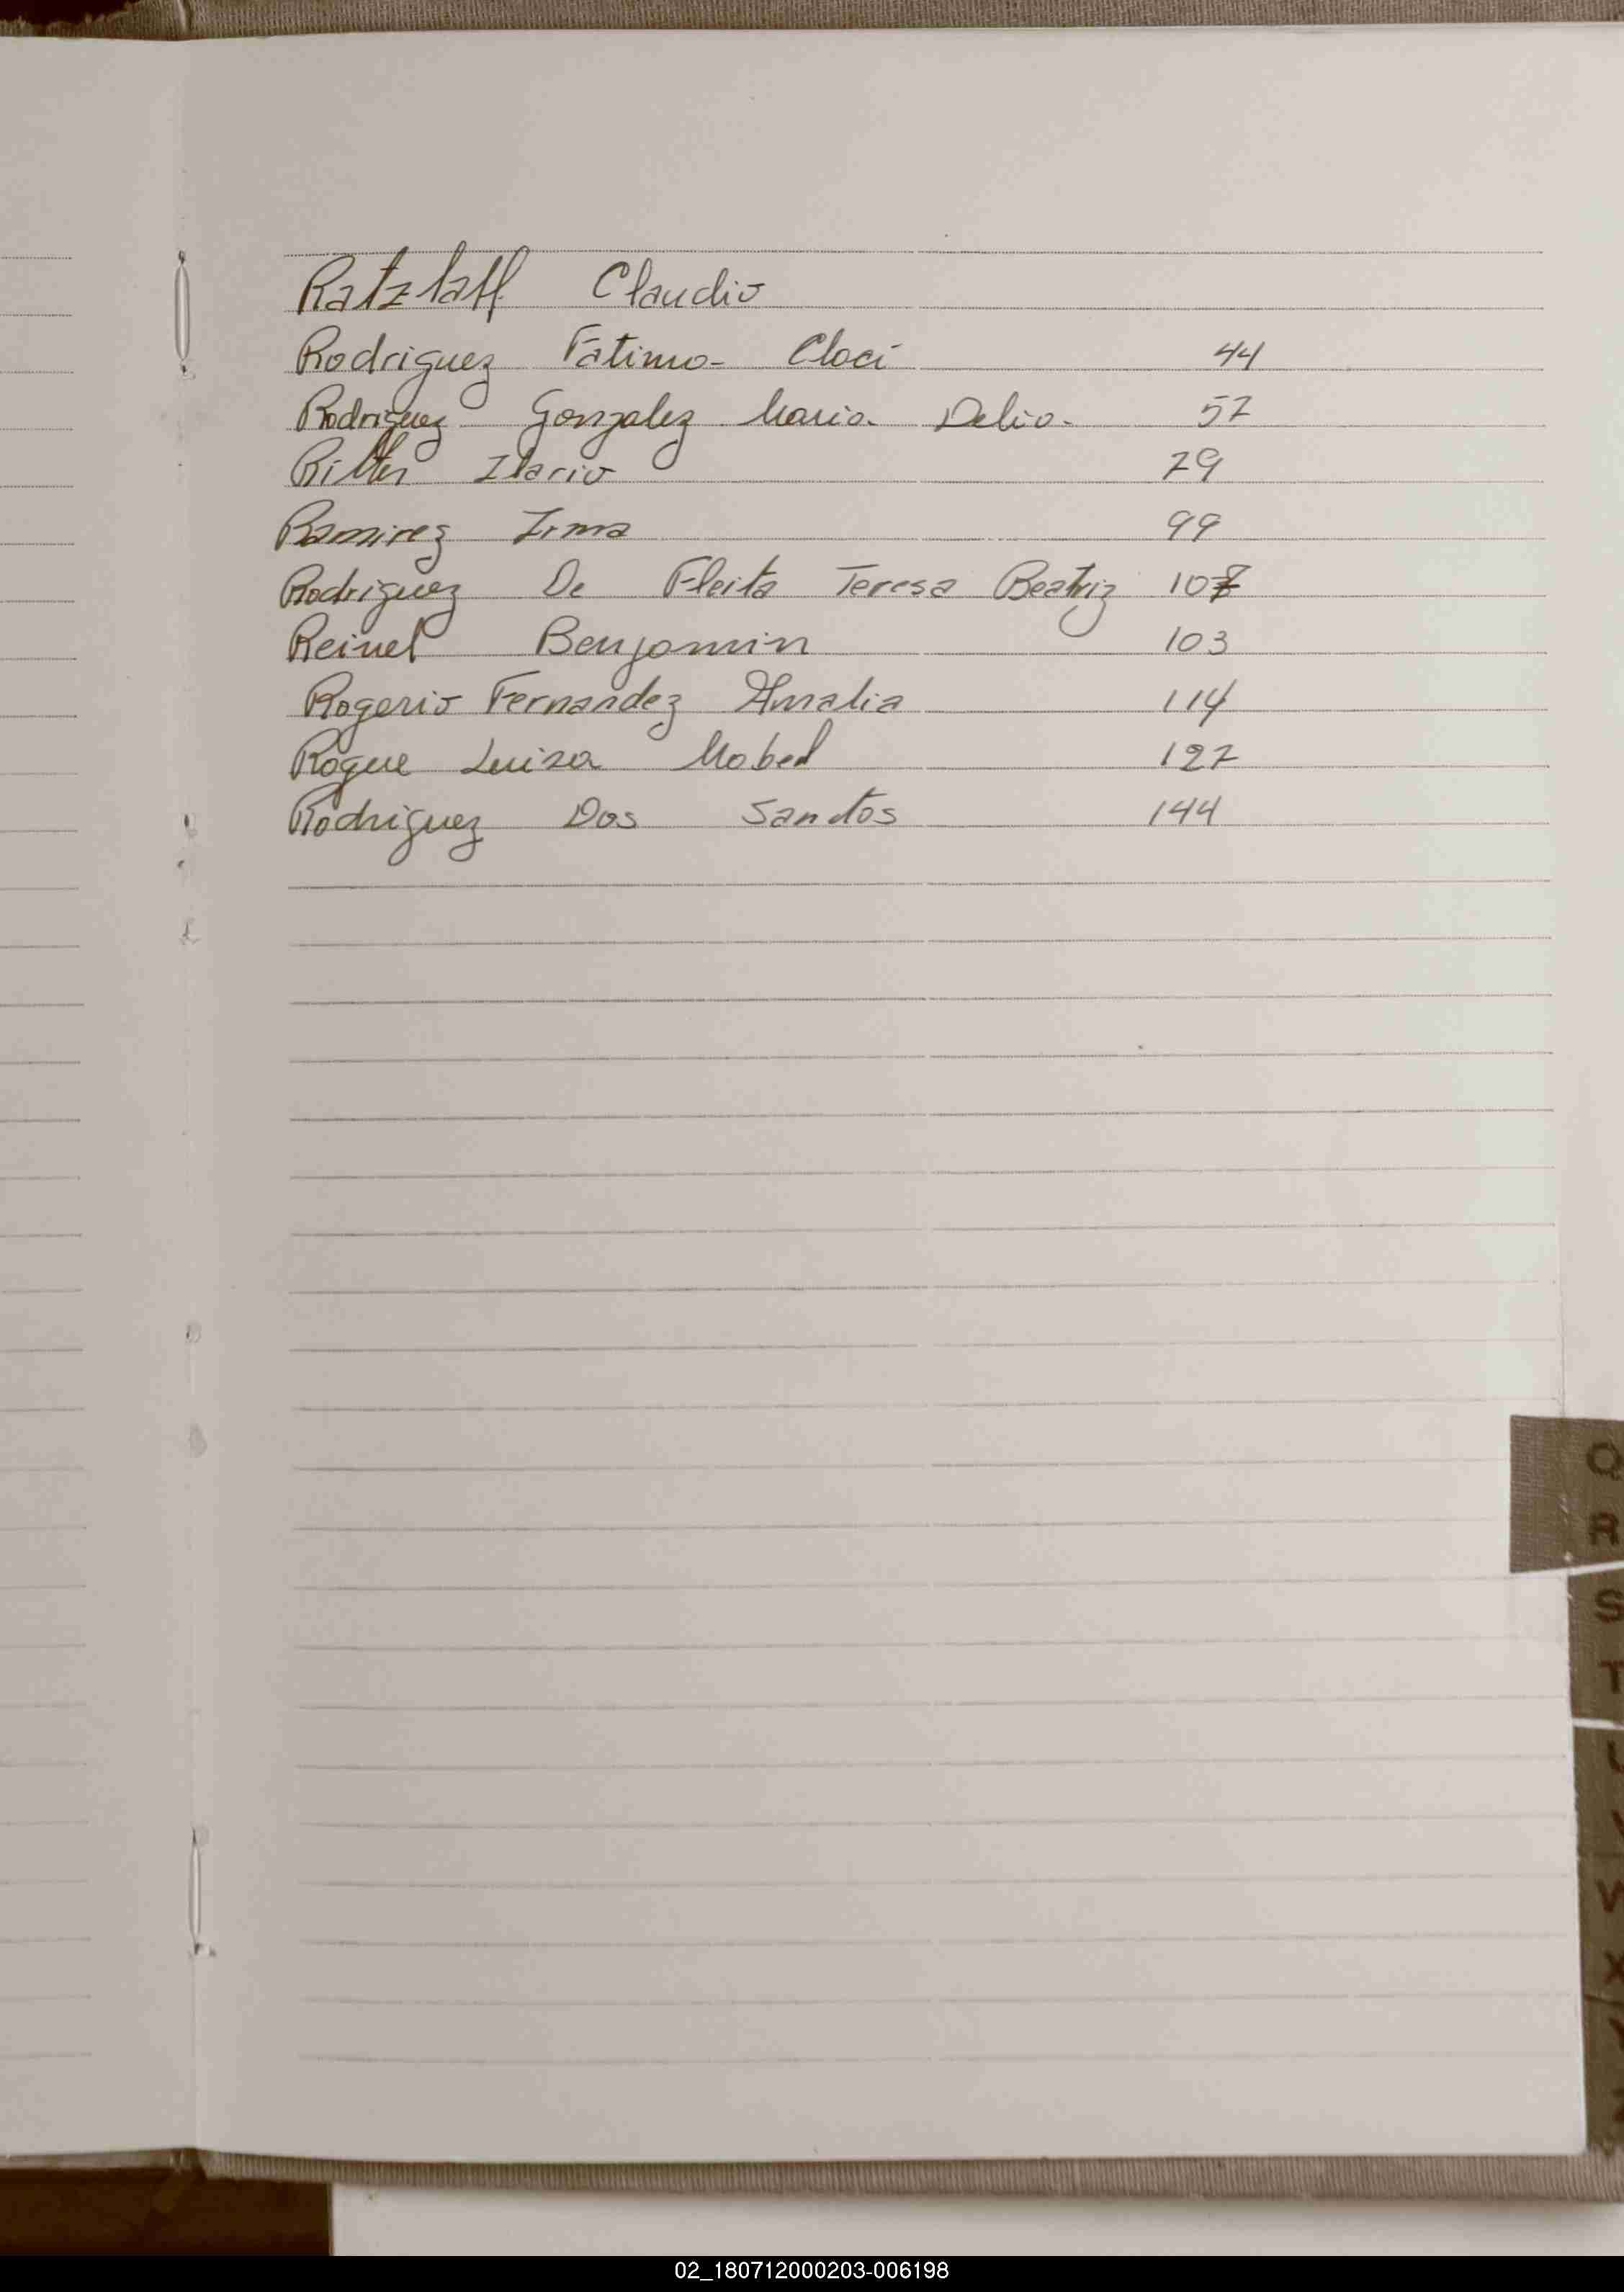 Ratzlaff Claudio
Rodriguez Fatima Claci 44
Rodriguez Gonzalez Maria Delia 57
Ritter Ilario 79
Ramirez Irma 99
Rodriguez De Fleita Teresa Beatriz 107
Reinel Benjamin 103
Rogerio Fernandez Amalia 114
Roque Luisa Mabel 127
Rodriguez Dos Santos 144
Q
R
S
T
U
V
W
X
02_180712000203-006198